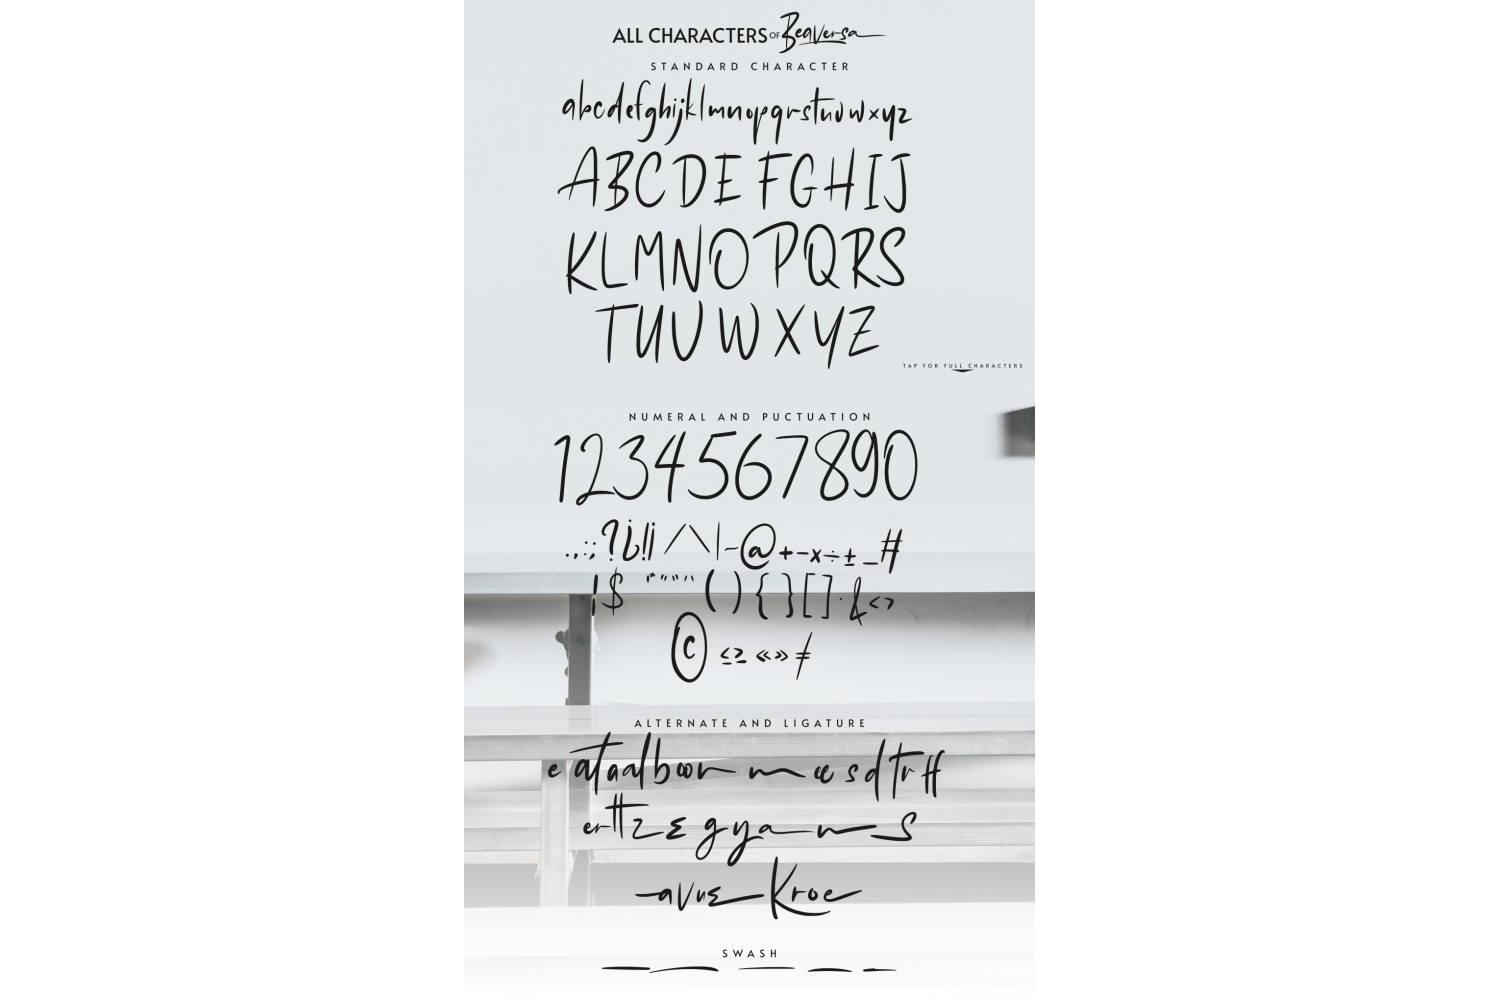 ALL CHARACTERS OF Beaversa
STANDARD CHARACTER
abcdefghijklmnopqrstuvwxyz
ABCDEFGHIJ
KLMNOPQRS
TUVWXYZ
TAP FOR FULL CHARACTERS
NUMERAL AND PUCTUATION
1234567890
.,:;?¿!¡/\|-@+-x÷±_#
¦$ (){}[]·&<>
© ≤≥«»≠
ALTERNATE AND LIGATURE
SWASH